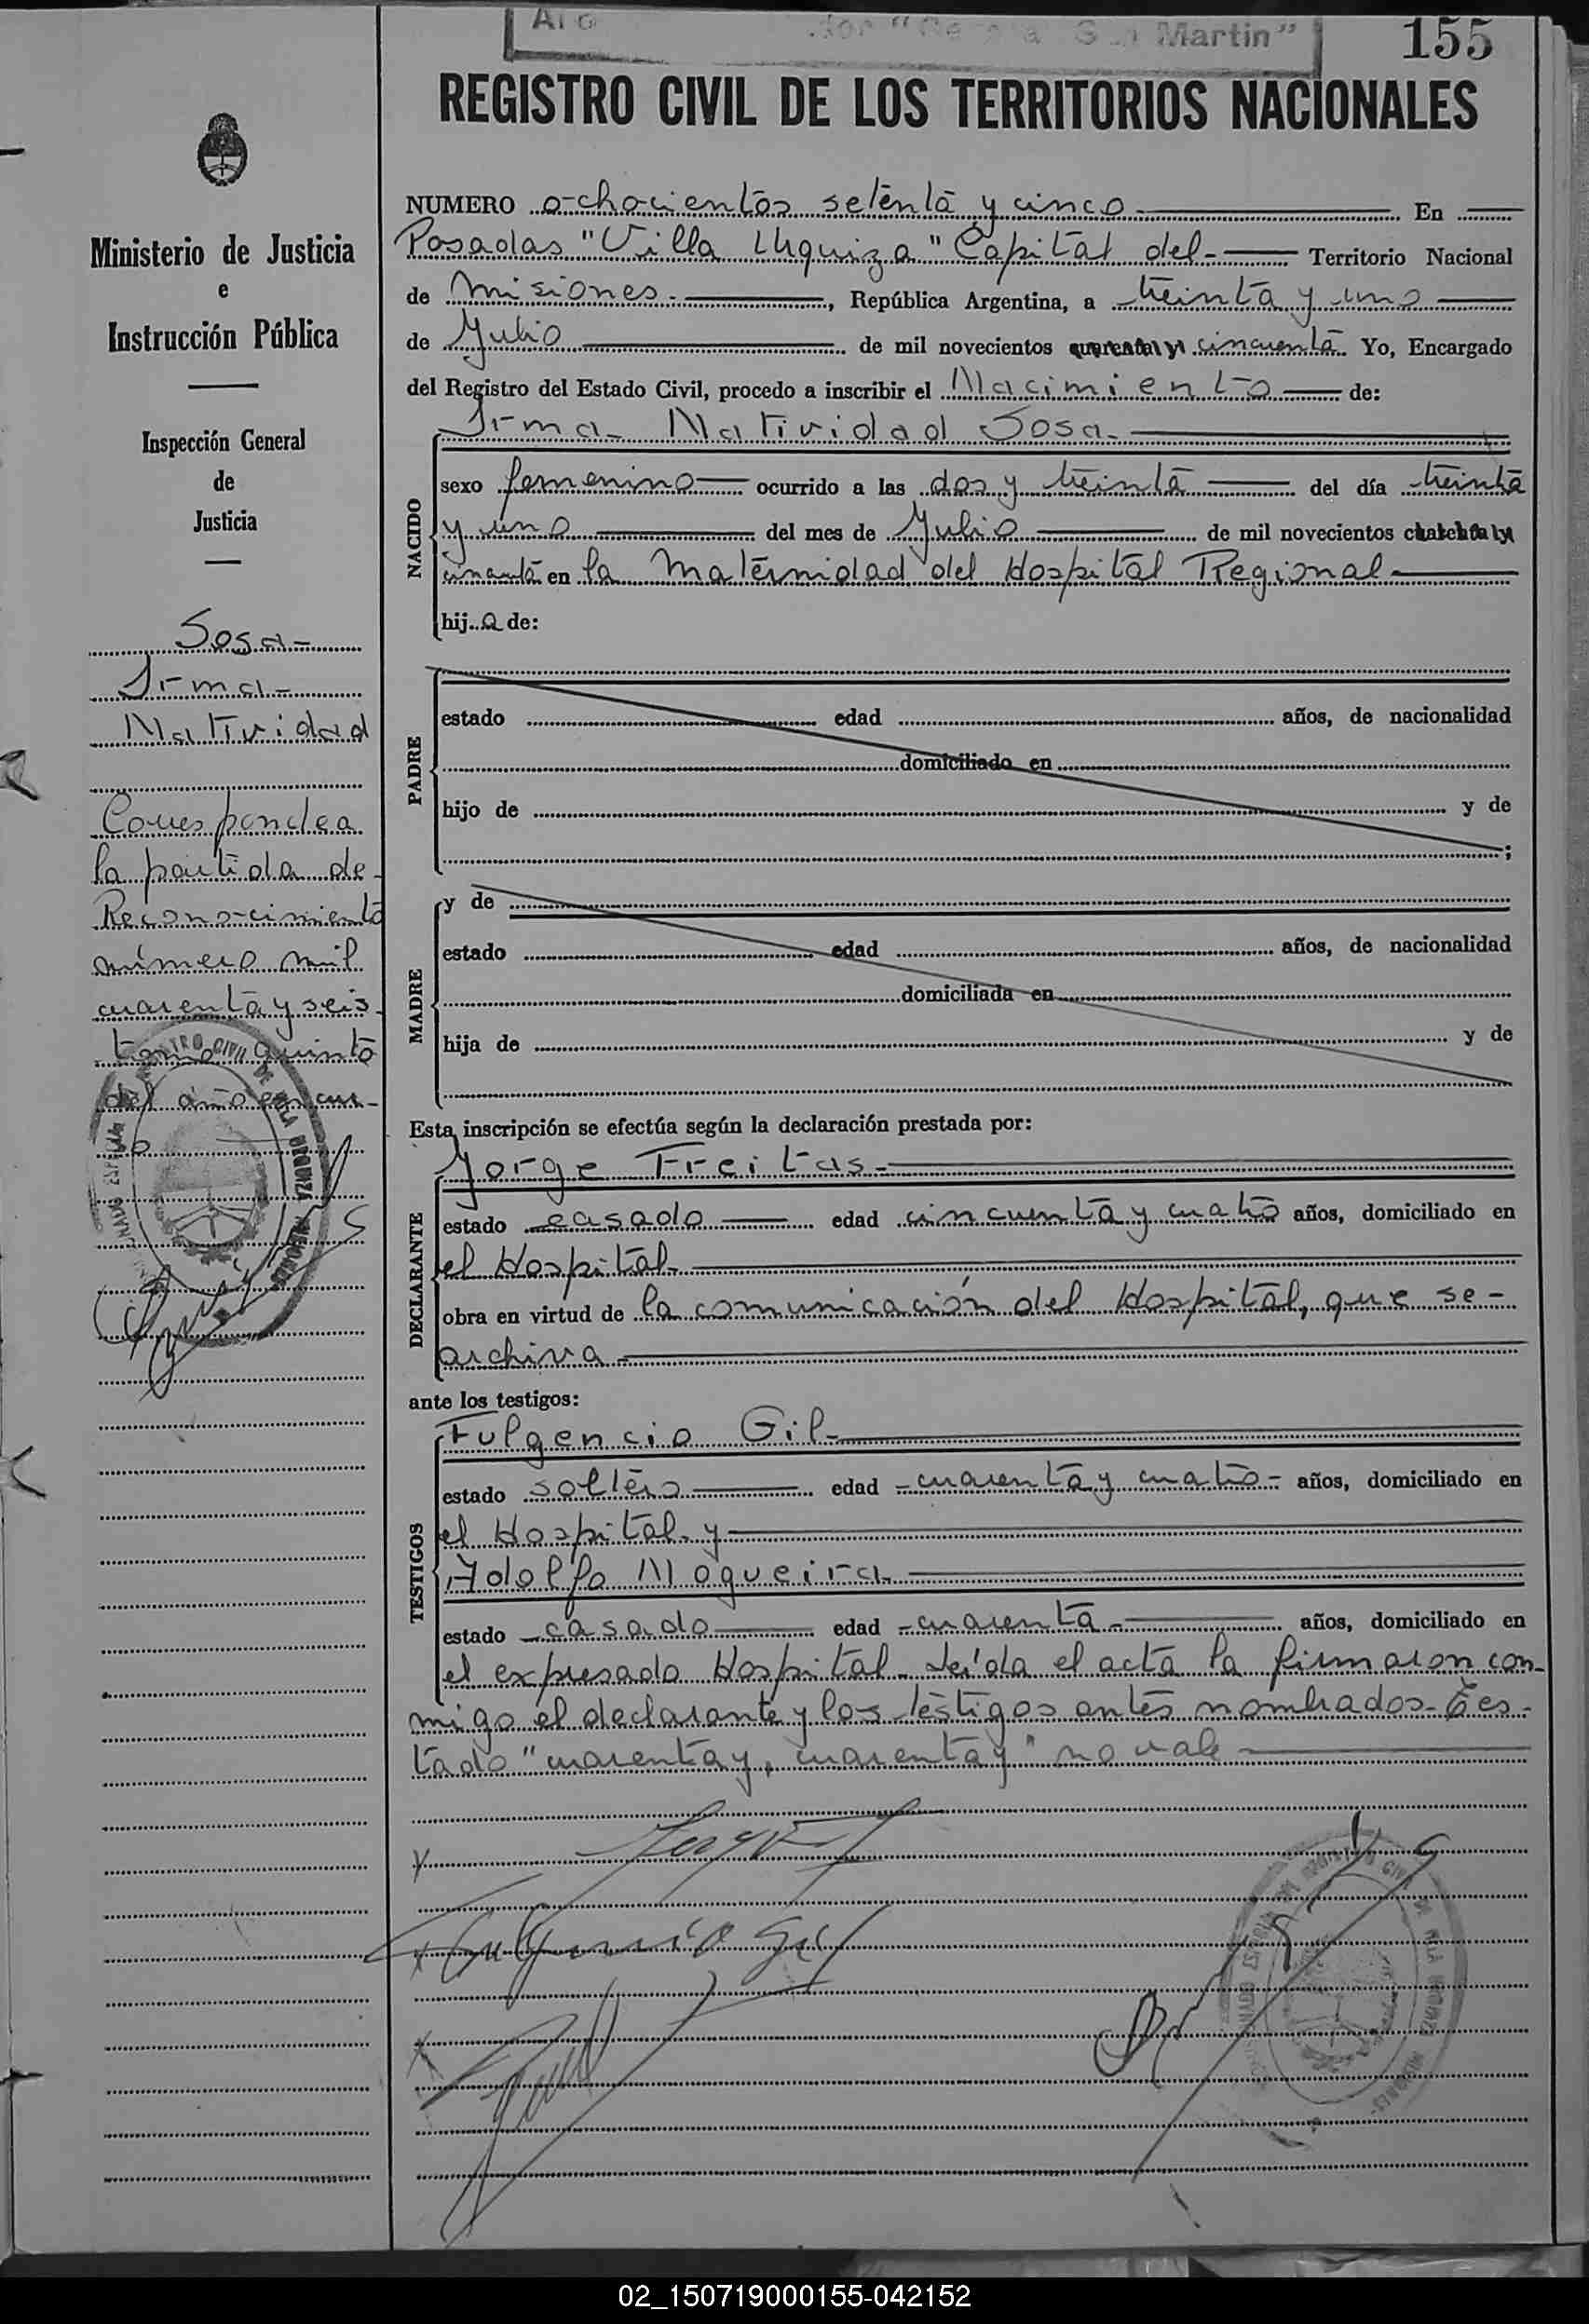 155
REGISTRO CIVIL DE LOS TERRITORIOS NACIONALES
Ministerio de Justicia
e
Instrucción Pública
Inspección General
de
Justicia
Sosa-
Irma-
Natividad
Corresponde a
la partida de
Reconocimiento
número mil
cuarenta y seis
tomo quinto
del año en cur-
so
NUMERO ochocientos setenta y cinco En
Posadas "Villa Urquiza" Capital del- Territorio Nacional
de Misiones-, República Argentina, a treinta y uno
de Julio de mil novecientos cuarenta y cincuenta Yo, Encargado
del Registro del Estado Civil, procedo a inscribir el Nacimiento de:
Irma- Natividad Sosa-
NACIDO
sexo femenino ocurrido a las dos y treinta del día treinta
y uno del mes de Julio de mil novecientos cuarenta y
cincuenta en la Maternidad del Hospital Regional-
hij a de:
PADRE
estado edad años, de nacionalidad
domiciliado en
hijo de y de
;
MADRE
y de
estado edad años, de nacionalidad
domiciliada en
hija de y de
Esta inscripción se efectúa según la declaración prestada por:
DECLARANTE
Jorge Freitas-
estado casado edad cincuenta y cuatro años, domiciliado en
el Hospital-
obra en virtud de la comunicación del Hospital, que se-
archiva-
ante los testigos:
TESTIGOS
Fulgencio Gil-
estado soltero edad -cuarenta y cuatro- años, domiciliado en
el Hospital-y
Adolfo Nogueira-
estado casado edad -cuarenta- años, domiciliado en
el expresado Hospital-Leída el acta la firmaron con-
migo el declarante y los testigos antes nombrados-Tes-
tado "cuarenta y, cuarenta y" no vale
Fulgencio Gil
02_150719000155-042152